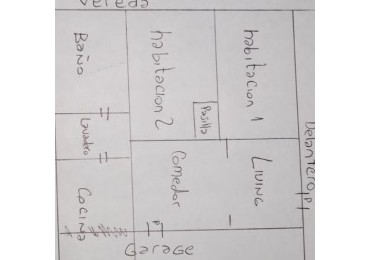 Delantero, p1
habitacion 1
LIVING
Pasillo
habitacion 2
Comedor
Baño
Lavadro
COCINA
Garage